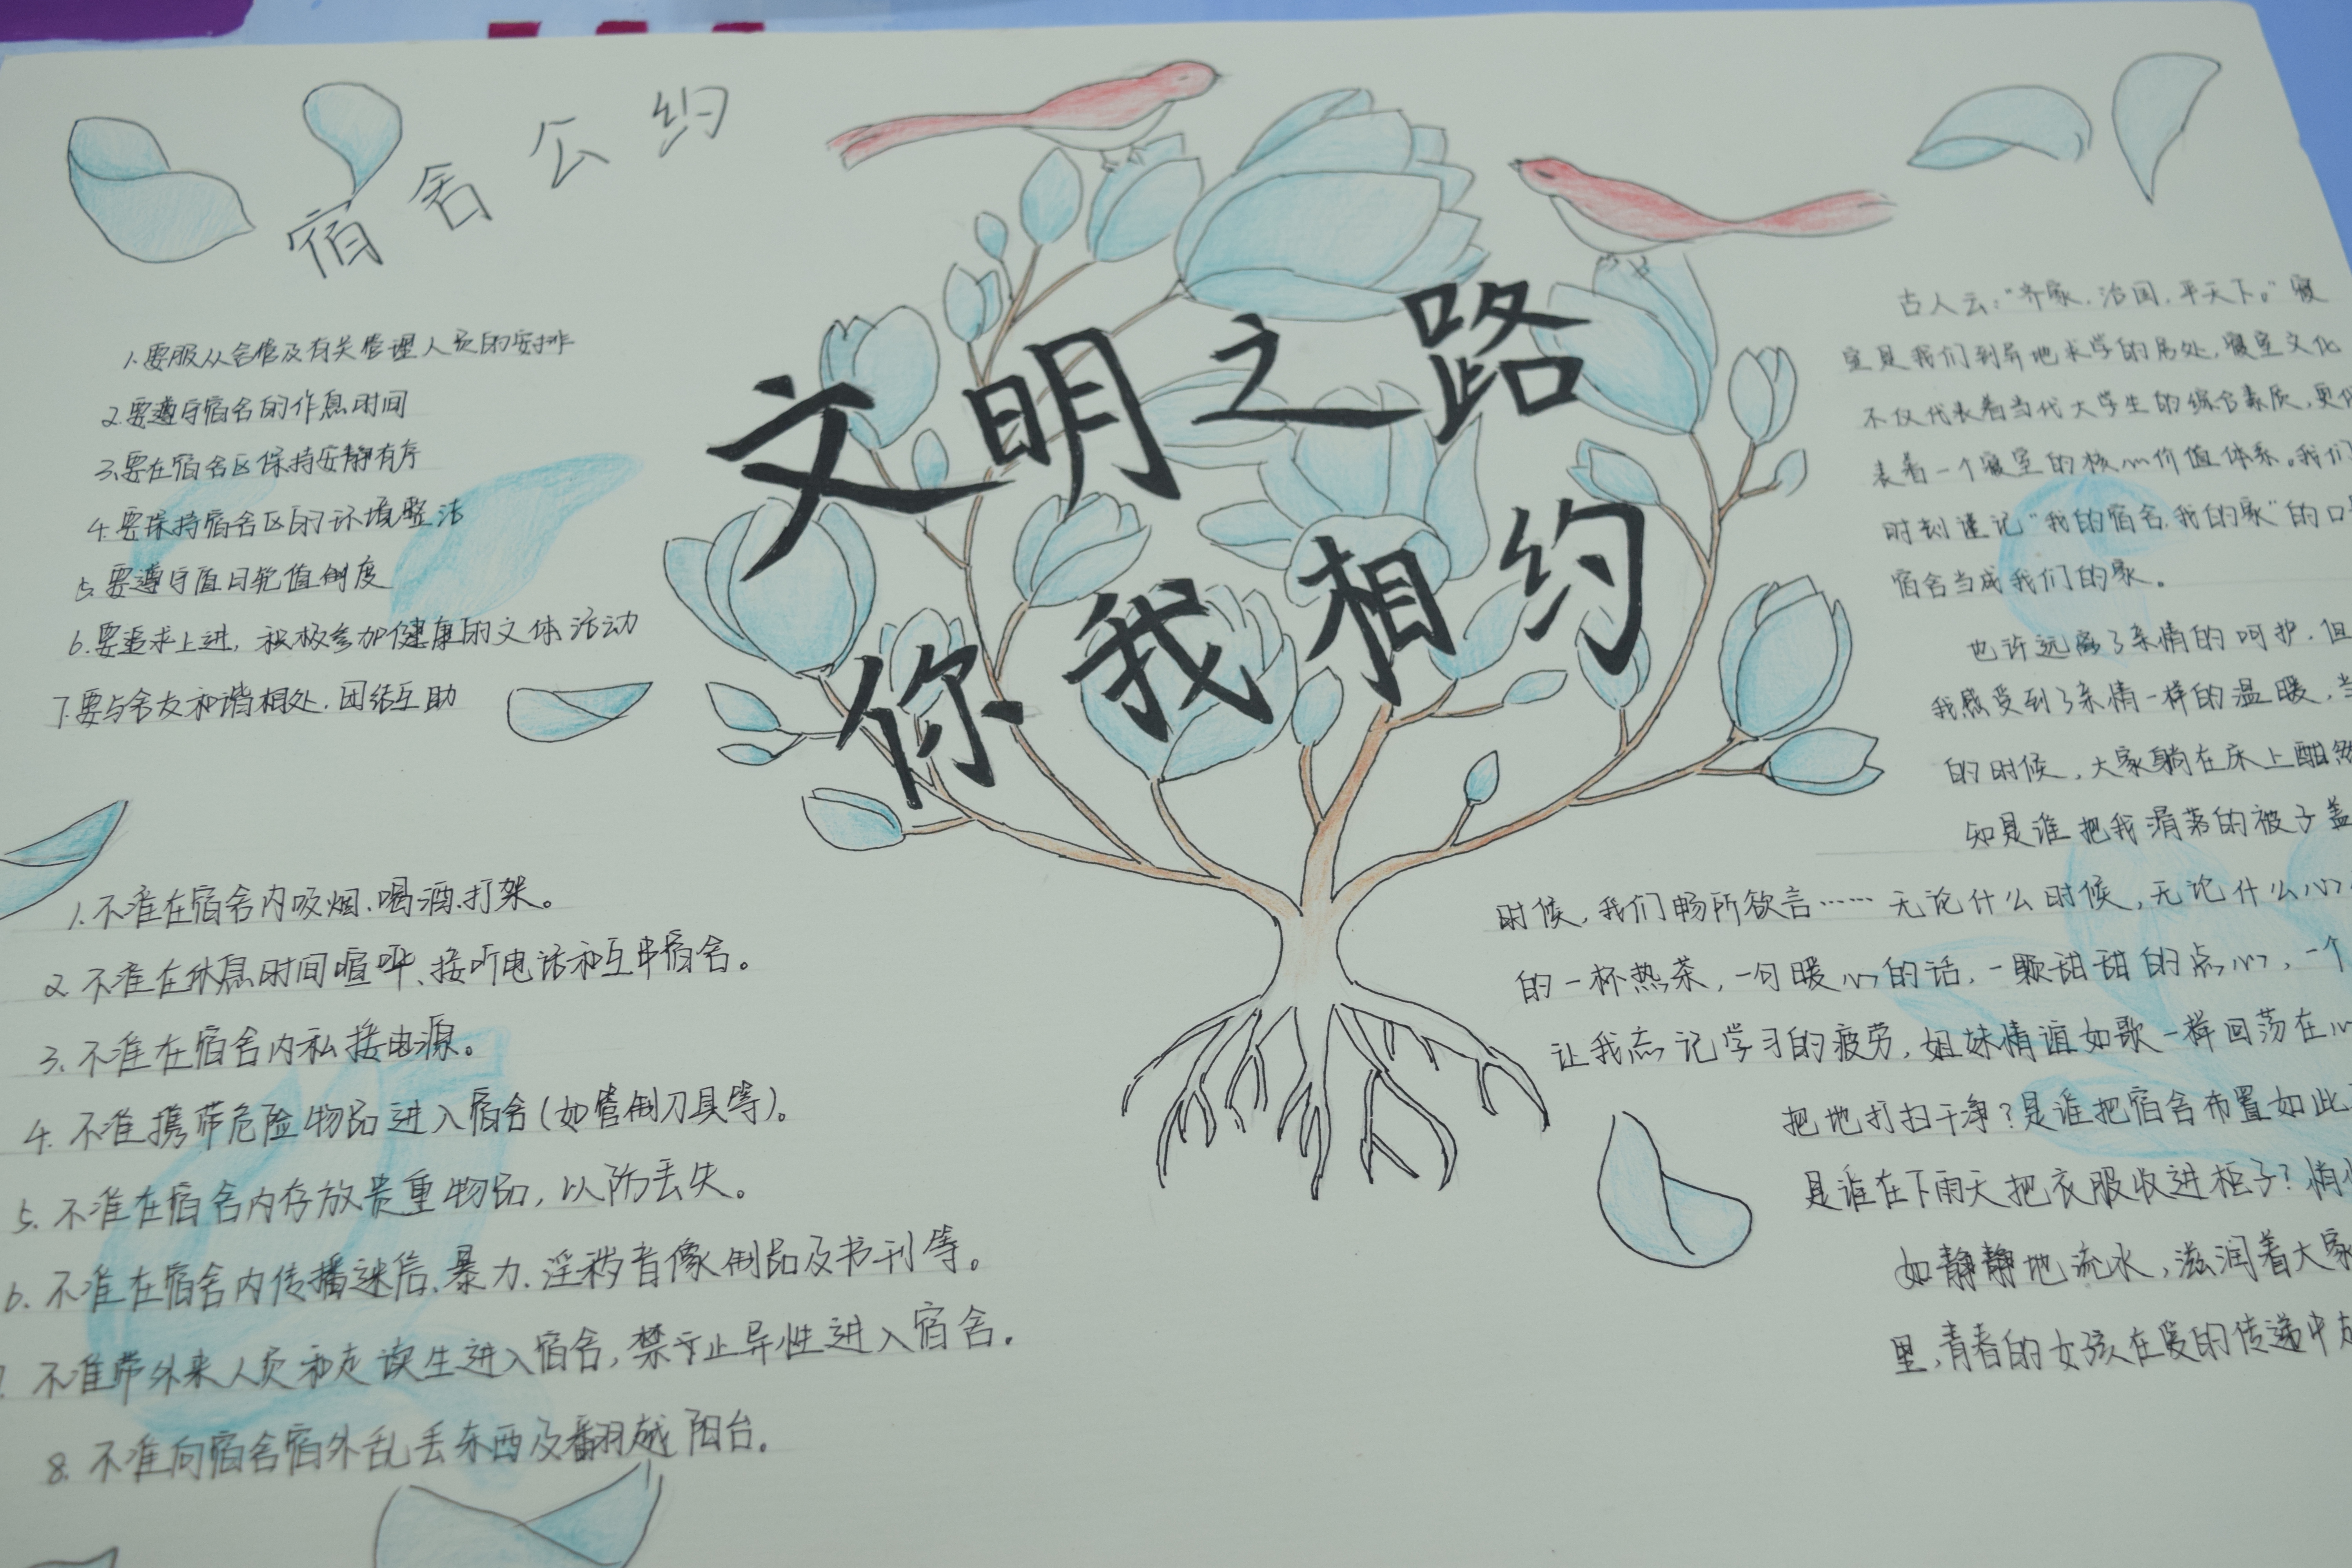 宿舍公约
文明之路
你我相约
1.要服从舍管及有关管理人员的安排
2.要遵守宿舍的作息时间
3.要在宿舍区保持安静有序
4.要保持宿舍区的环境整洁
5.要遵守值日轮值制度
6.要追求上进,积极参加健康的文体活动
7.要与舍友和谐相处.团结互助
1.不准在宿舍内吸烟.喝酒.打架。
2.不准在休息时间喧哗、接听电话和互串宿舍。
3.不准在宿舍内私接电源。
4.不准携带危险物品进入宿舍(如管制刀具等)。
5.不准在宿舍内存放贵重物品,以防丢失。
6.不准在宿舍内传播迷信.暴力.淫秽音像制品及书刊等。
不准带外来人员和走读生进入宿舍,禁于止异性进入宿舍.
8.不准向宿舍宿外乱丢东西及翻越阳台。
古人云:“齐家.治国.平天下。”寝
室是我们到异地求学的居处,寝室文化
不仅代表着当代大学生的综合素质,更
表着一个寝室的核心价值体系。我们
时刻谨记“我的宿舍.我的家”的口
宿舍当成我们的家。
也许远离了亲情的呵护.但
我感受到了亲情一样的温暖,
的时候,大家躺在床上酣然
知是谁把我滑落的被子盖
时候,我们畅所欲言……无论什么时候,无论什么心
的一杯热茶,一句暖心的话,一颗甜甜的点心,一个
让我忘记学习的疲劳,姐妹情谊如歌一样回荡在心
把地打扫干净?是谁把宿舍布置如此
是谁在下雨天把衣服收进柜子?悄
如静静地流水,滋润着大家
里,青春的女孩在爱的传递中